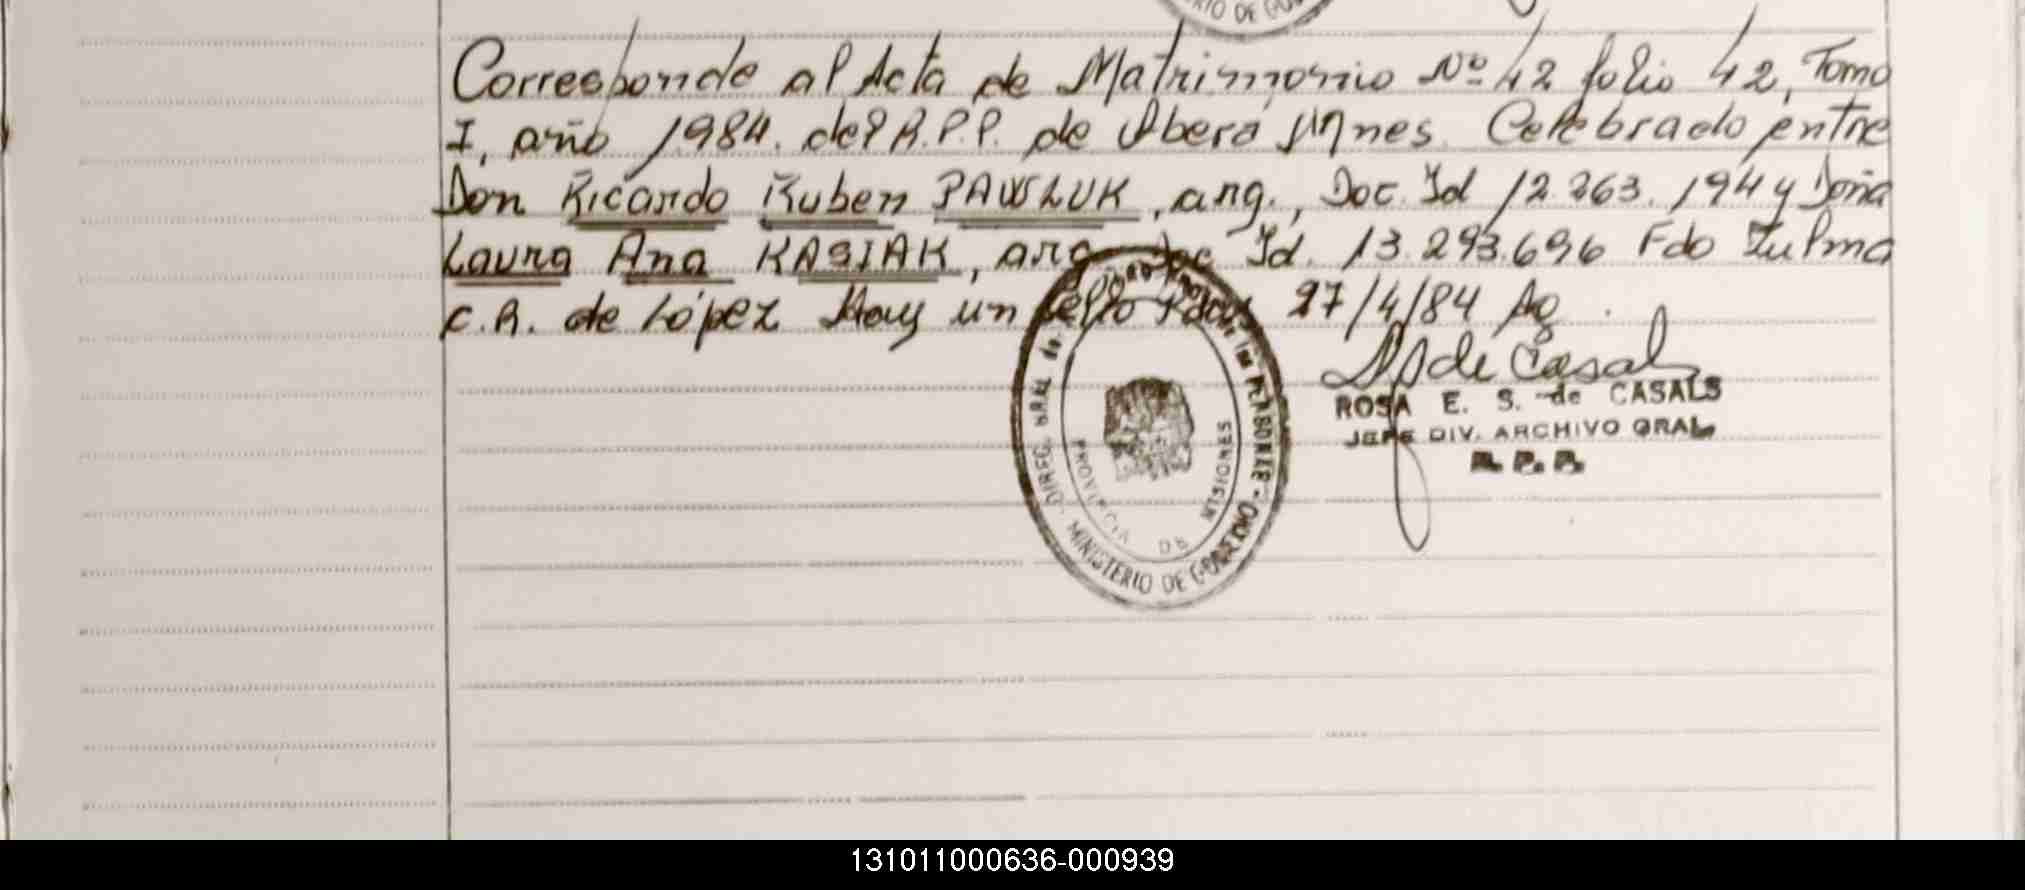 RIO DE GO
Corresponde al Acta de Matrimonio Nº 42 folio 42, Tomo
I, año 1984. del R.P.P. de Oberá Mnes. Celebrado entre
Don Ricardo Ruben PAWLUK, arg., Doc. Id 12.263.194 y Doña
Laura Ana KASIAK, arg. Doc Id. 13.293.696 Fdo Zulma
C.R. de López Hay un sello 27/4/84
DIREC. GRAL de las PERSONAS - MINISTERIO DE GOBIERNO -
PROVINCIA DE MISIONES
de Casals
ROSA E. S. de CASALS
JEFE DIV. ARCHIVO GRAL
R. P. P.
131011000636-000939